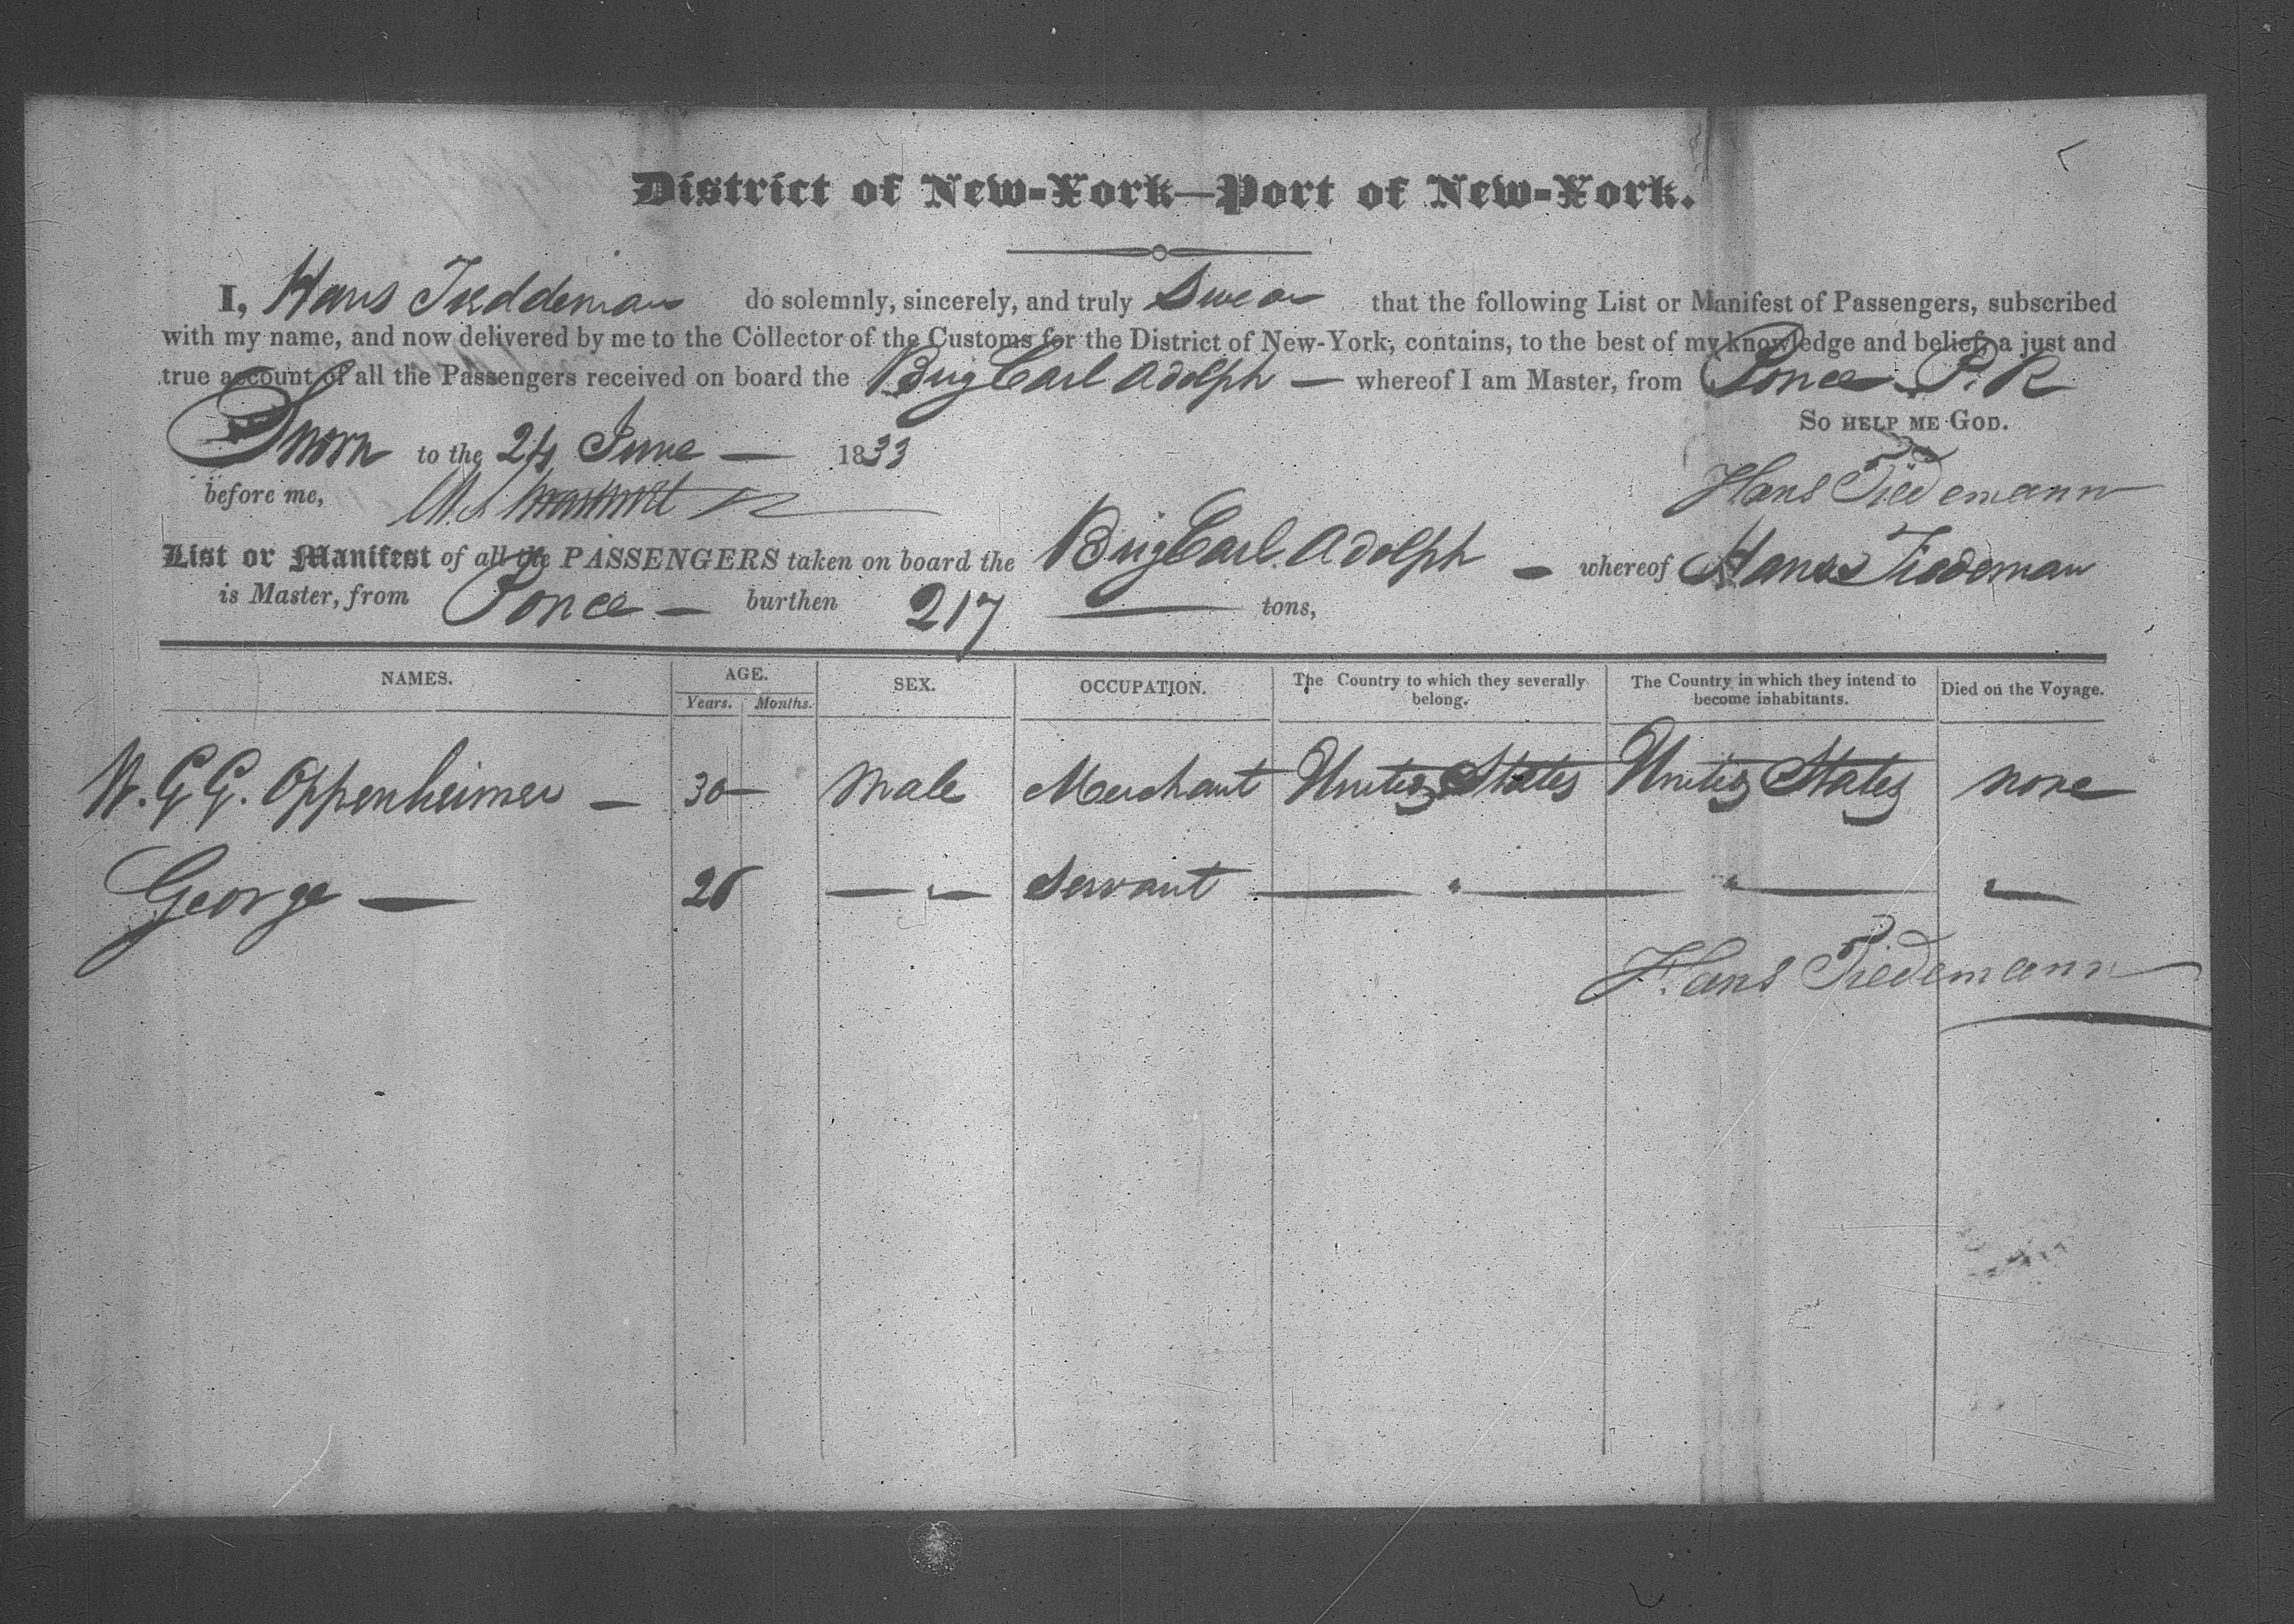 District of New-York—Port of New-York.
I, Hans Tieddeman do solemnly, sincerely, and truly Swear that the following List or Manifest of Passengers, subscribed
with my name, and now delivered by me to the Collector of the Customs for the District of New-York, contains, to the best of my knowledge and belief, a just and
true account of all the Passengers received on board the Brig Carl Adolph — whereof I am Master, from Ponce P. R
So help me God.
Sworn to the 24 June — 1833
Hans Tiedemann
before me,
List or Manifest of all the PASSENGERS taken on board the Brig Carl Adolph — whereof Hans Tiedeman
is Master, from Ponce — burthen 217 — tons,
NAMES. AGE. SEX. OCCUPATION. The Country to which they severally belong. The Country in which they intend to become inhabitants. Died on the Voyage.
Years. Months.
W. G. G. Oppenheimer — 30 — Male Merchant United States United States none
George — 26 — " — Servant — " — " — "
Hans Tiedemann